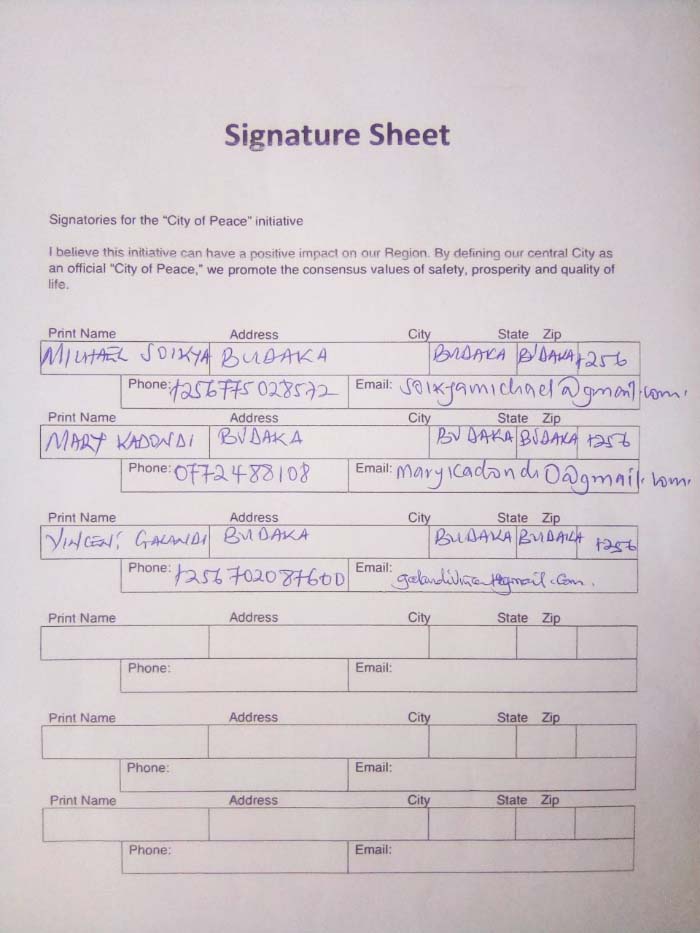 Signature Sheet
Signatories for the "City of Peace" initiative
I believe this initiative can have a positive impact on our Region. By defining our central City as
an official "City of Peace," we promote the consensus values of safety, prosperity and quality of
life.
Print Name Address City State Zip
MICHAEL SOIKYA BUDAKA BUDAKA BUDAKA +256
Phone: +256775028572 Email: soikyamichael@gmail.com.
Print Name Address City State Zip
MARY KADONDI BUDAKA BUDAKA BUDAKA +256
Phone: 0772488108 Email: marykadondi0@gmail.com.
Print Name Address City State Zip
VINCENT GALANDI BUDAKA BUDAKA BUDAKA +256
Phone: +256702087600 Email:
Print Name Address City State Zip
Phone: Email:
Print Name Address City State Zip
Phone: Email:
Print Name Address City State Zip
Phone: Email: